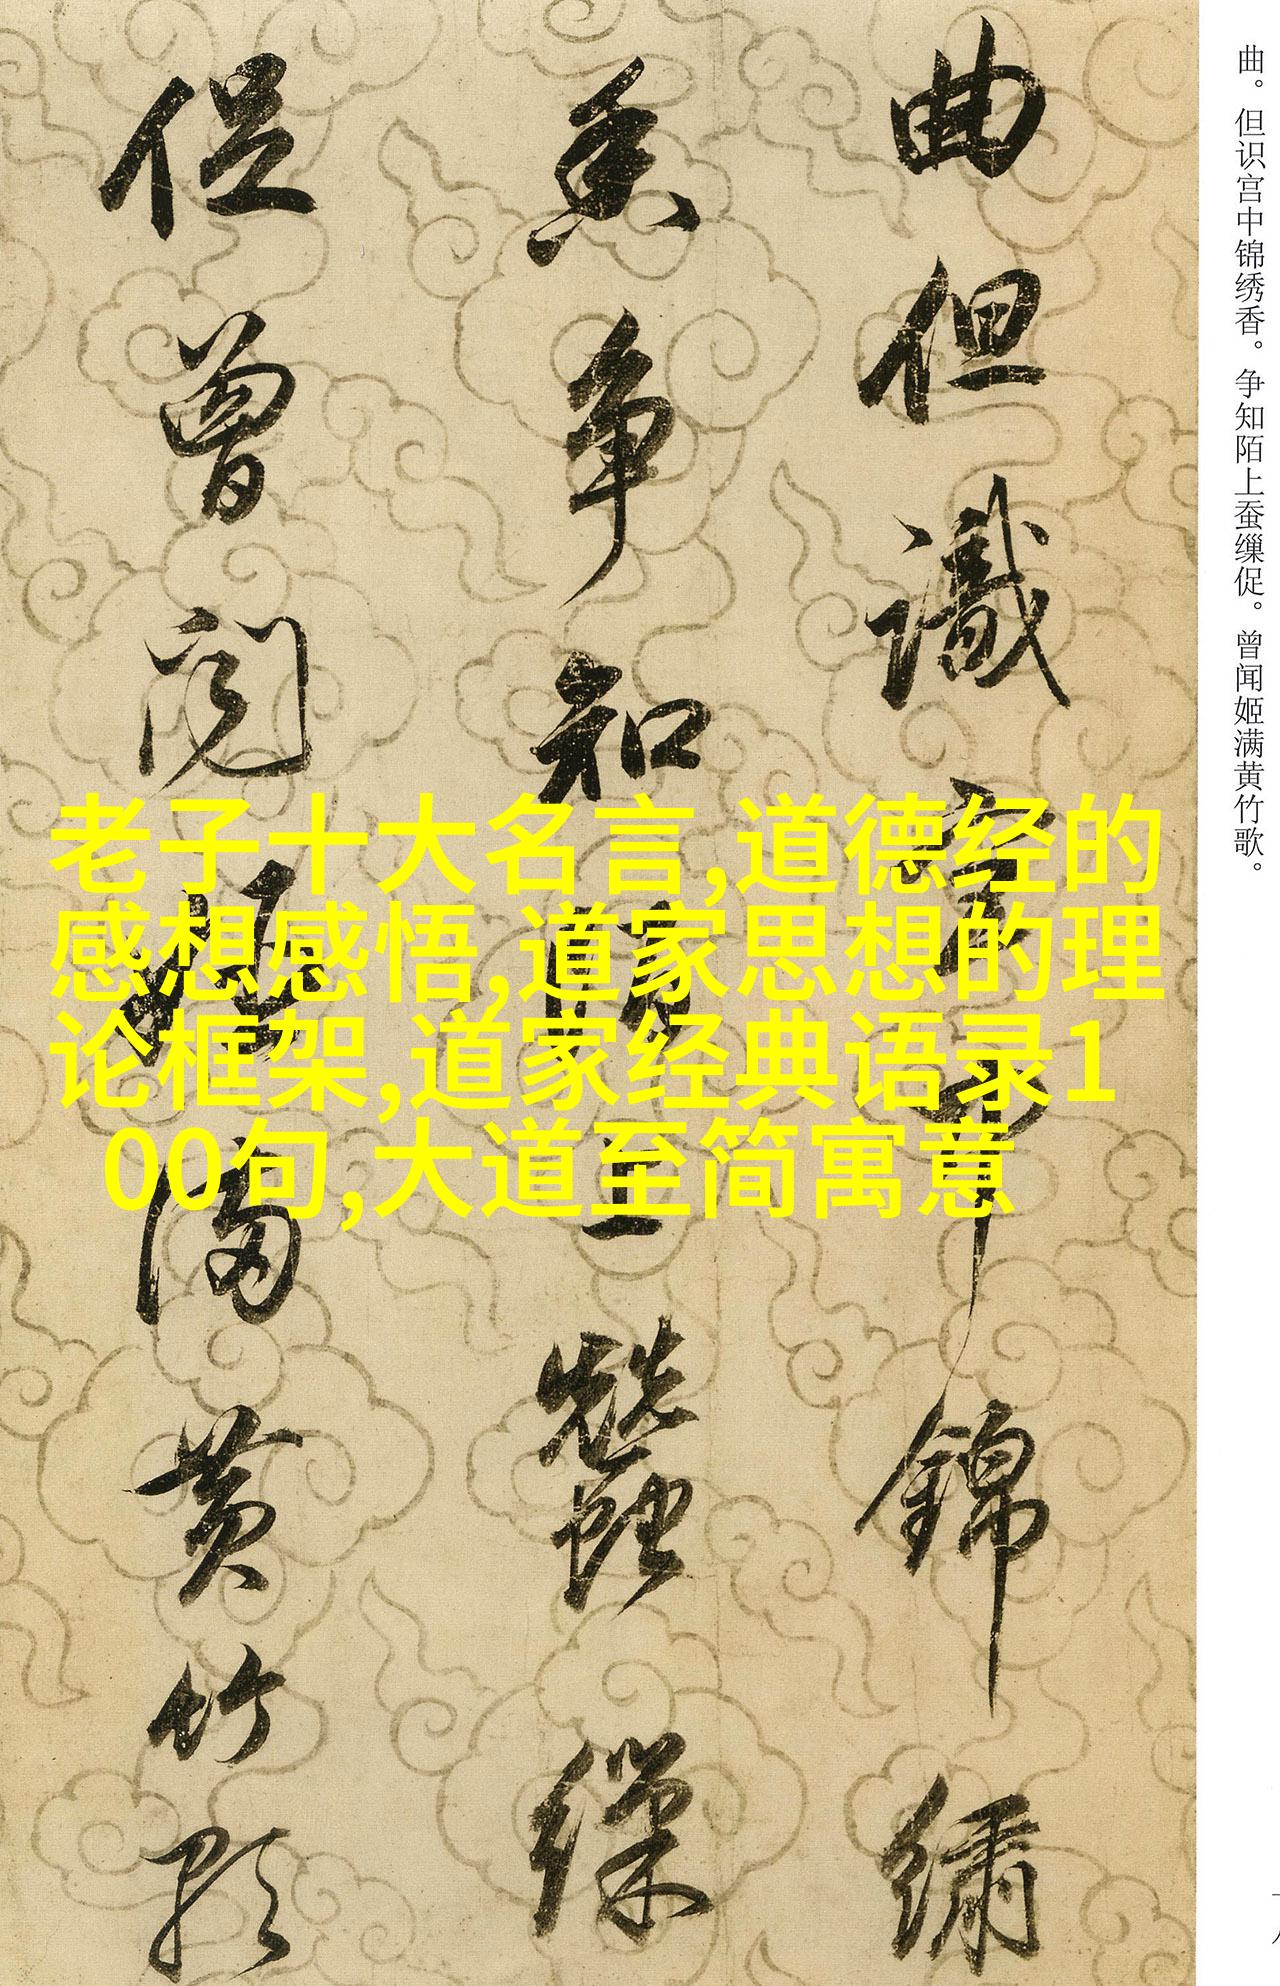 曲。但识宫中锦绣香。争知陌上蚕缫促。曾闻姬满黄竹歌。
曲但識宮中錦繡
香争知陌上蠶繅
促曾闻姬满黄竹歌
老子十大名言,道德经的
感想感悟,道家思想的理
论框架,道家经典语录1
00句,大道至简寓意